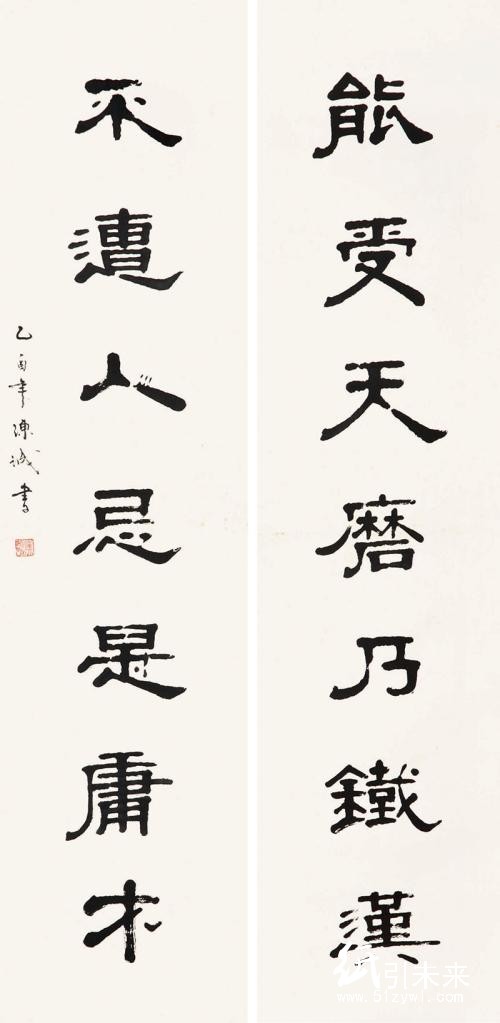 能受天磨乃鐵漢
不遭人忌是庸才
乙酉年陳誠書
紙引未来
www.blzywl.com